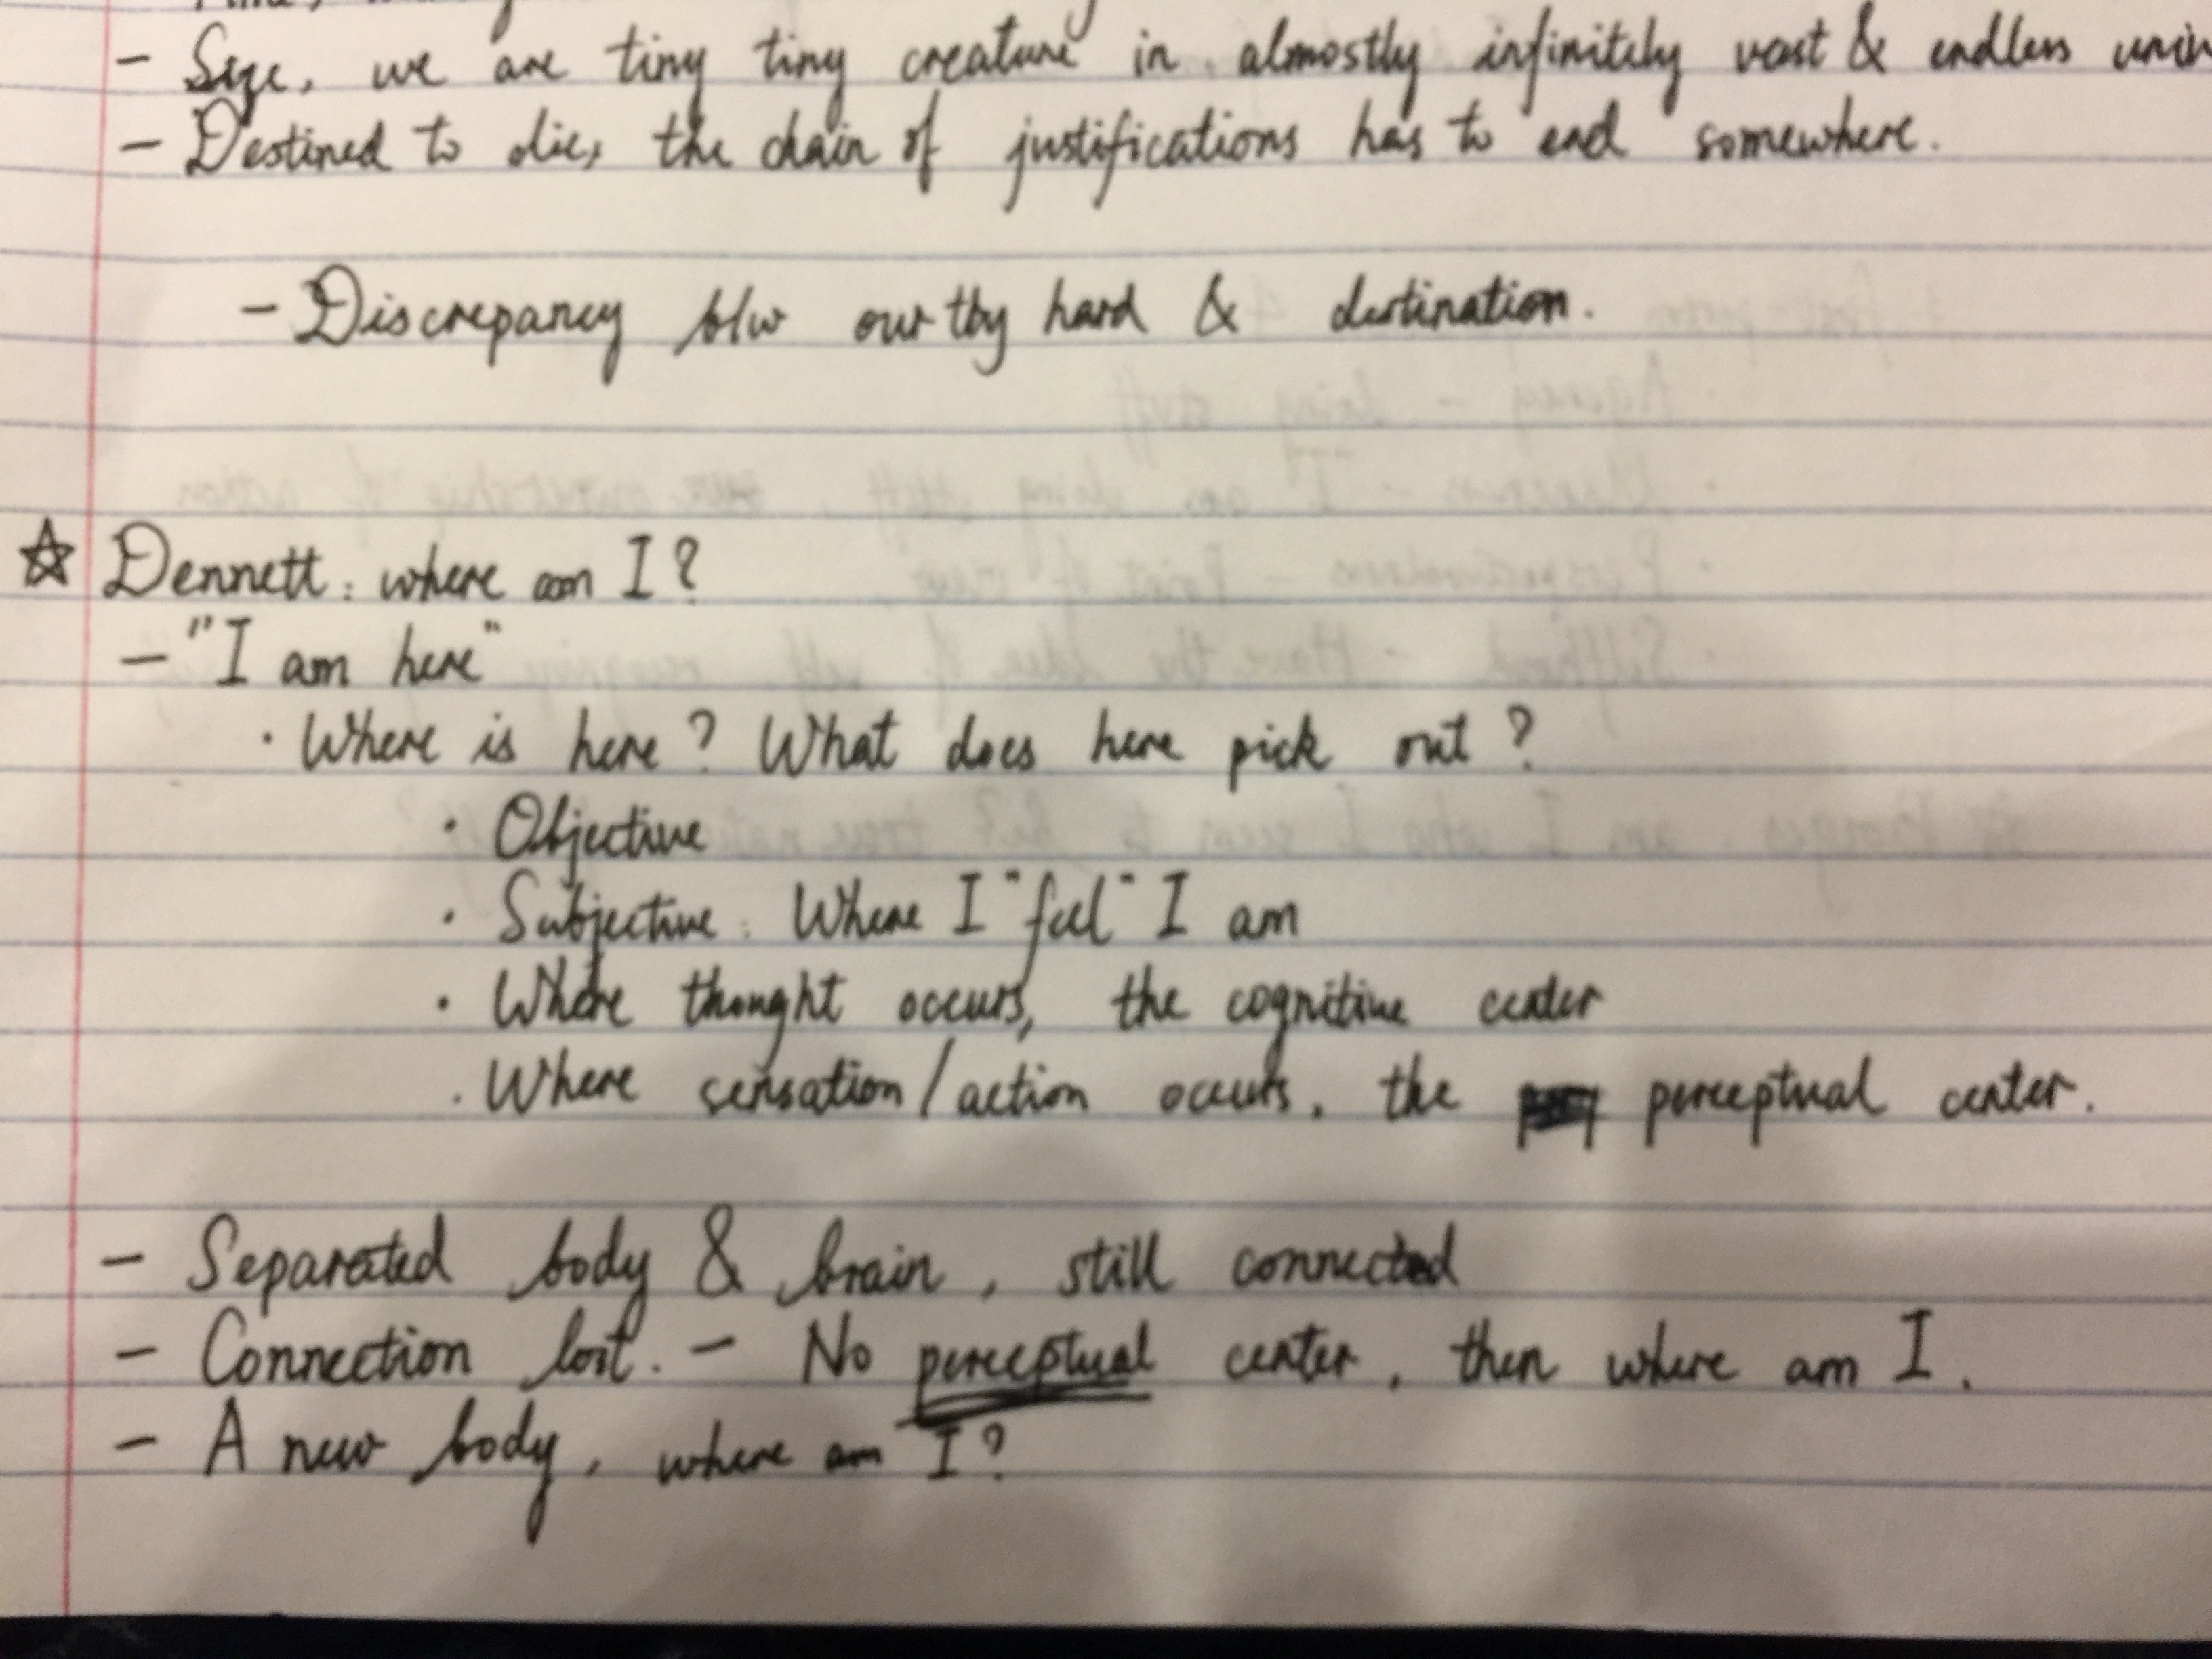 - Size, we are tiny tiny creature in almostly infinitely vast & endless
- Destined to die, the chain of justifications has to end somewhere.
- Discrepancy b/w our try hard & destination.
☆ Dennett: where am I?
- "I am here"
· Where is here? What does here pick out?
· Objective
· Subjective: Where I "feel" I am
· Where thought occurs, the cognitive center
· Where sensation/action occurs, the perceptual center.
- Separated body & brain, still connected
- Connection lost. - No perceptual center, then where am I.
- A new body, where am I?